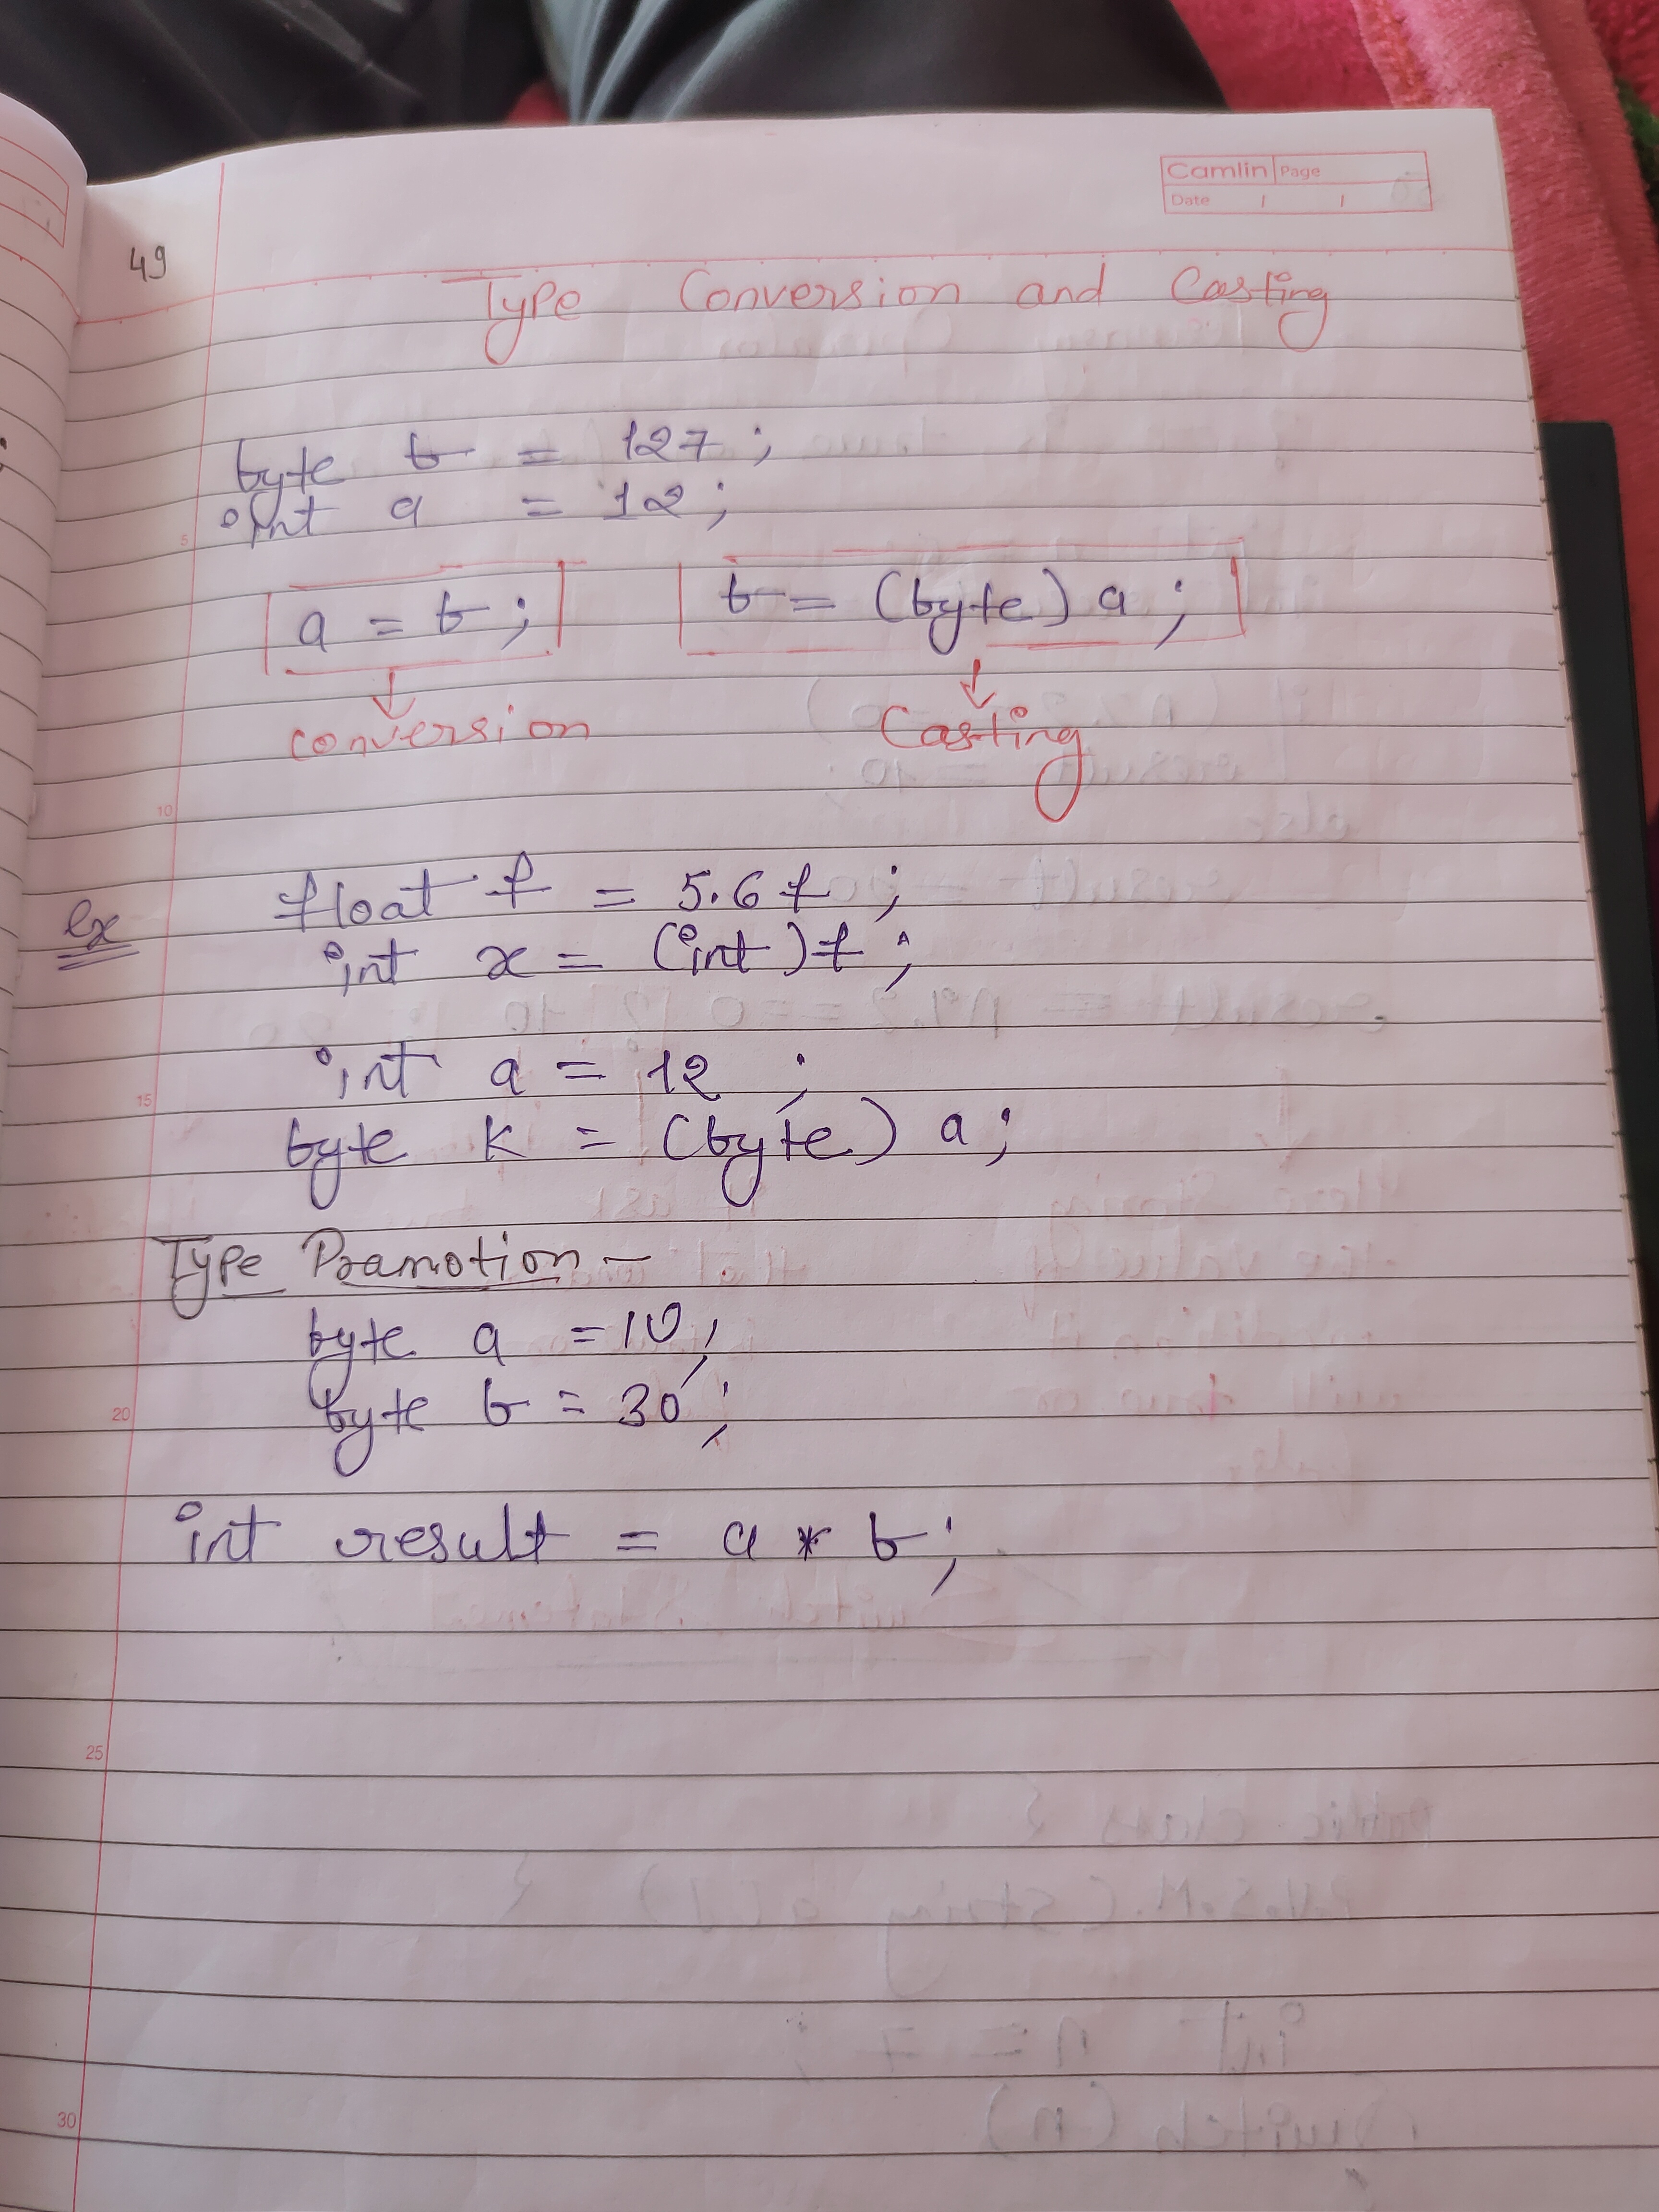 Camlin Page
Date / /
49
Type Conversion and Casting
byte b = 127;
int a = 12;
a = b; b = (byte) a;
conversion Casting
ex float f = 5.6f;
int x = (int)f;
int a = 12;
byte k = (byte) a;
Type Pramotion -
byte a = 10;
byte b = 30;
int result = a * b;
5
10
15
20
25
30